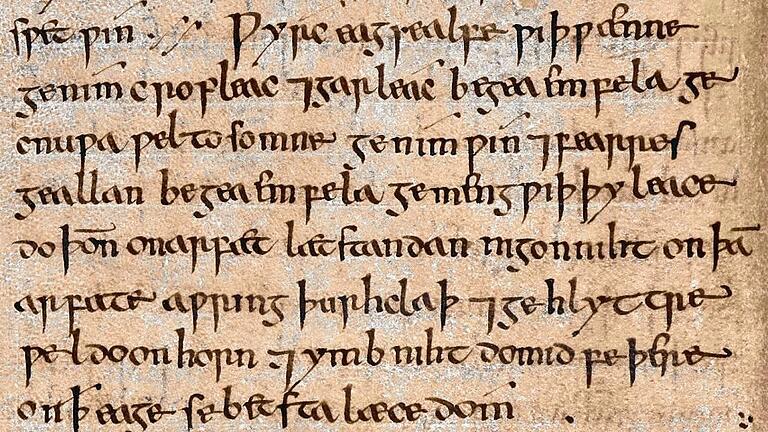 sƿet ƿin · // Ƿyrc eagsealfe ƿiþ ƿænne
genim cropleac ⁊ garleac begea emfela ge
cnuƿa ƿel tosomne genim ƿin ⁊ fearres
geallan begea emfela gemeng ƿiþ þy leace
do þoñ on arfæt læt standan nigon niht on þā
arfate aƿring þurh claþ ⁊ gehlyttre
ƿel do on horn ⁊ ymb niht do mid feþre
on ꝥ eage se betsta læcedom .